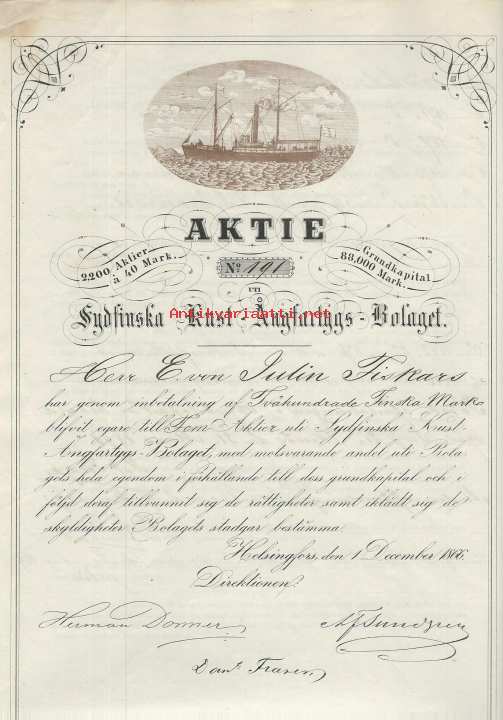 AKTIE
2,200 Aktier
à 40 Mark.
No 191
Grundkapital
88,000 Mark.
UTI
Antikvariaatti.net
Sydfinska Kust-Ångfartygs-Bolaget.
Herr E. von Julin Fiskars
har genom inbetalning af Tvåhundrade Finska Mark
blifvit egare till Fem Aktier uti Sydfinska Kust-
Ångfartygs-Bolaget, med motsvarande andel uti Bola-
gets hela egendom i förhållande till dess grundkapital och i
följd deraf tillvunnit sig de rättigheter samt iklädt sig de
skyldigheter Bolagets stadgar bestämma.
Helsingfors, den 1 December 1866.
Direktionen:
Herman Donner
A F Sundgren